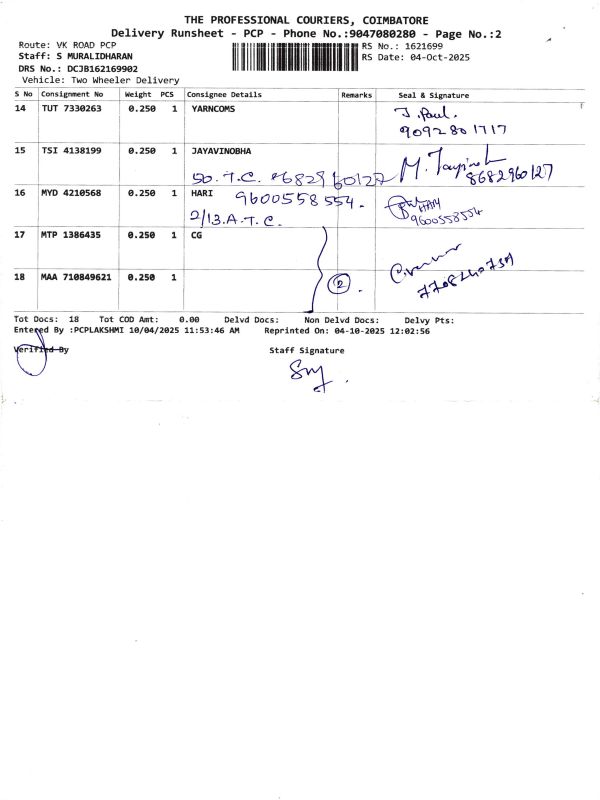 THE PROFESSIONAL COURIERS, COIMBATORE
Delivery Runsheet - PCP - Phone No.:9047080280 - Page No.:2
Route: VK ROAD PCP RS No.: 1621699
Staff: S MURALIDHARAN RS Date: 04-Oct-2025
DRS No.: DCJB162169902
Vehicle: Two Wheeler Delivery
S No Consignment No Weight PCS Consignee Details Remarks Seal & Signature
14 TUT 7330263 0.250 1 YARNCOMS J. Paul.
9092801717
15 TSI 4138199 0.250 1 JAYAVINOBHA
50. T.C. 8682960127 8682960127
16 MYD 4210568 0.250 1 HARI 9600558554. HARI
2/13. A.T.C. 9600558554
17 MTP 1386435 0.250 1 CG
18 MAA 710849621 0.250 1 2.
Tot Docs: 18 Tot COD Amt: 0.00 Delvd Docs: Non Delvd Docs: Delvy Pts:
Entered By :PCPLAKSHMI 10/04/2025 11:53:46 AM Reprinted On: 04-10-2025 12:02:56
Verified By Staff Signature